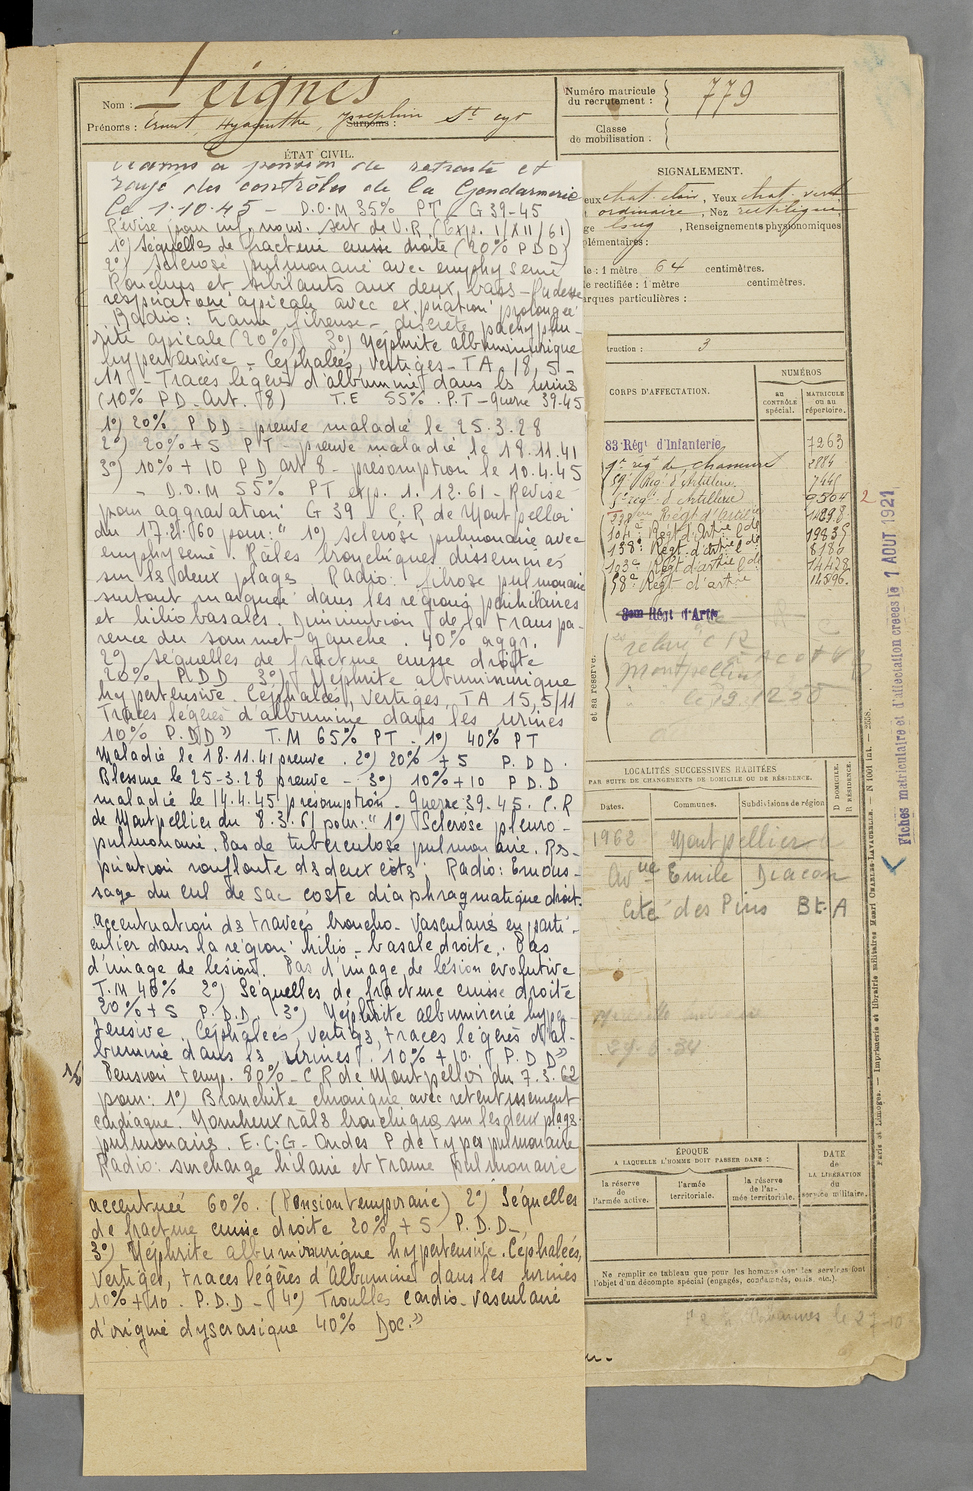 Nom : Teignes
Prénoms : Ernest, Hyacinthe, Josephin Surnoms : St Cyr
Numéro matricule du recrutement : 779
Classe de mobilisation :
ÉTAT CIVIL.
à pension de retraite et
rayé des contrôles de la Gendarmerie
le 1.10.45 - D.O.M 35% PT - G 39-45
Révisé pour inf. nouv. sert de V.R (Exp. 1/XII/61)
1°) Séquelles de fracture cuisse droite (20% P D D)
2°) Sclérose pulmonaire avec emphysème
Ronchus et sibilants aux deux bases - Rudesse
respiratoire apicale avec expiration prolongée
Radio : trame fibreuse - discrète pachypleu-
rite apicale (20%) 3°) Néphrite albuminurique
hypertensive - Céphalées, vertiges - T A. 18,5 -
11 - Traces légères d'albumine dans les urines
(10% P D. Art. 78) T.E 55% P.T - Guerre 39-45
1°) 20% P D D - preuve maladie le 25.3.28
2°) 20% + 5 P T - preuve maladie le 18.11.41
3°) 10% + 10 P D art 8 - présomption le 10.4.45
- D.O.M 55% PT exp. 1.12.61 - Révisé
pour aggravation G 39 - C.R de Montpellier
du 17.XI.60 pour : " 1°) Sclérose pulmonaire avec
emphysème. Râles bronchiques disséminés
sur les deux plages. Radio : fibrose pulmonaire
surtout marquée dans les régions périhilaires
et hilio basales. Diminution de la transpa-
rence du sommet gauche. 40% aggr.
2°) Séquelles de fracture cuisse droite
20% P.D D 3°) Néphrite albuminurique
hypertensive. Céphalées, vertiges, T A 15,5/11
Traces légères d'albumine dans les urines
10% P.D D " T.M 65% PT - 1°) 40% PT
Maladie le 18.11.41 preuve. 2°) 20% + 5 P.D D.
Blessure le 25-3.28 preuve - 3°) 10% + 10 P.D.D
maladie le 14.4.45 présomption - Guerre 39-45. C.R
de Montpellier du 8.3.61 pour : " 1°) Sclérose pleuro-
pulmonaire. Pas de tuberculose pulmonaire. Res-
piration soufflante ds deux côtés ; Radio : Emous-
sage du cul de sac costo diaphragmatique droit.
accentuation ds travées broncho-vasculaires en parti-
culier dans la région hilio-basale droite. Pas
d'image de lésion. Pas d'image de lésion évolutive
T.M 40% 2°) Séquelles de fracture cuisse droite
20% + 5 P.D.D. 3°) Néphrite albuminurie hyper-
tensive. Céphalées, vertiges, traces légères d'al-
bumine dans les urines. 10% + 10. P.D D "
Pension temp. 80% - C R de Montpellier du 7.3.62
pour : 1°) Bronchite chronique avec retentissement
cardiaque. Nombreux râles bronchiques sur les deux plages
pulmonaires. E.C.G - Ondes P de type pulmonaire
Radio : surcharge hilaire et trame pulmonaire
accentuée 60%. (Pension temporaire) 2°) Séquelles
de fracture cuisse droite 20% + 5 P.D.D -
3°) Néphrite albuminurique hypertensive. Céphalées,
vertiges, traces légères d'Albumine dans les urines
10% + 10. P.D.D - 4°) Troubles cardio-vasculaires
d'origine dyscrasique 40% Doc. "
SIGNALEMENT.
eux chat. clair, Yeux chat. vert
ordinaire, Nez rectiligne
ge long, Renseignements physionomiques
plémentaires :
le : 1 mètre 64 centimètres.
le rectifiée : 1 mètre centimètres.
arques particulières :
truction : 3
CORPS D'AFFECTATION.
NUMÉROS
au CONTRÔLE spécial.
MATRICULE ou au répertoire.
83 Régt d'Infanterie 7263
1er rég. de chasseurs 2884
59e Rég. d'Artillerie 7446
5e rég. d'Artillerie 9504 2
Régt d'Artillerie
104e Régt d'Artie Lde 19835
138e Régt d'artie Lde 8180
103e Régt d'artie Lde 14428
58e Régt d'artie 14596.
3em Régt d'Artie
Montpellier
et sa réserve.
LOCALITÉS SUCCESSIVES HABITÉES
PAR SUITE DE CHANGEMENTS DE DOMICILE OU DE RÉSIDENCE.
Dates.
Communes.
Subdivisions de région
D DOMICILE.
R RÉSIDENCE.
1962 Montpellier
Avnue Emile Diacon
Cité des Pins Bt A
ÉPOQUE
A LAQUELLE L'HOMME DOIT PASSER DANS :
DATE de LA LIBÉRATION du service militaire.
la réserve de l'armée active.
l'armée territoriale.
la réserve de l'armée territoriale.
Ne remplir ce tableau que pour les hommes dont les services font
l'objet d'un décompte spécial (engagés, condamnés, omis, etc.).
Fiches matriculaire et d'affectation créées le 1 AOUT 1921
Paris et Limoges. — Imprimerie et librairie militaires Henri CHARLES-LAVAUZELLE. — N° 1001 int. — 2558.